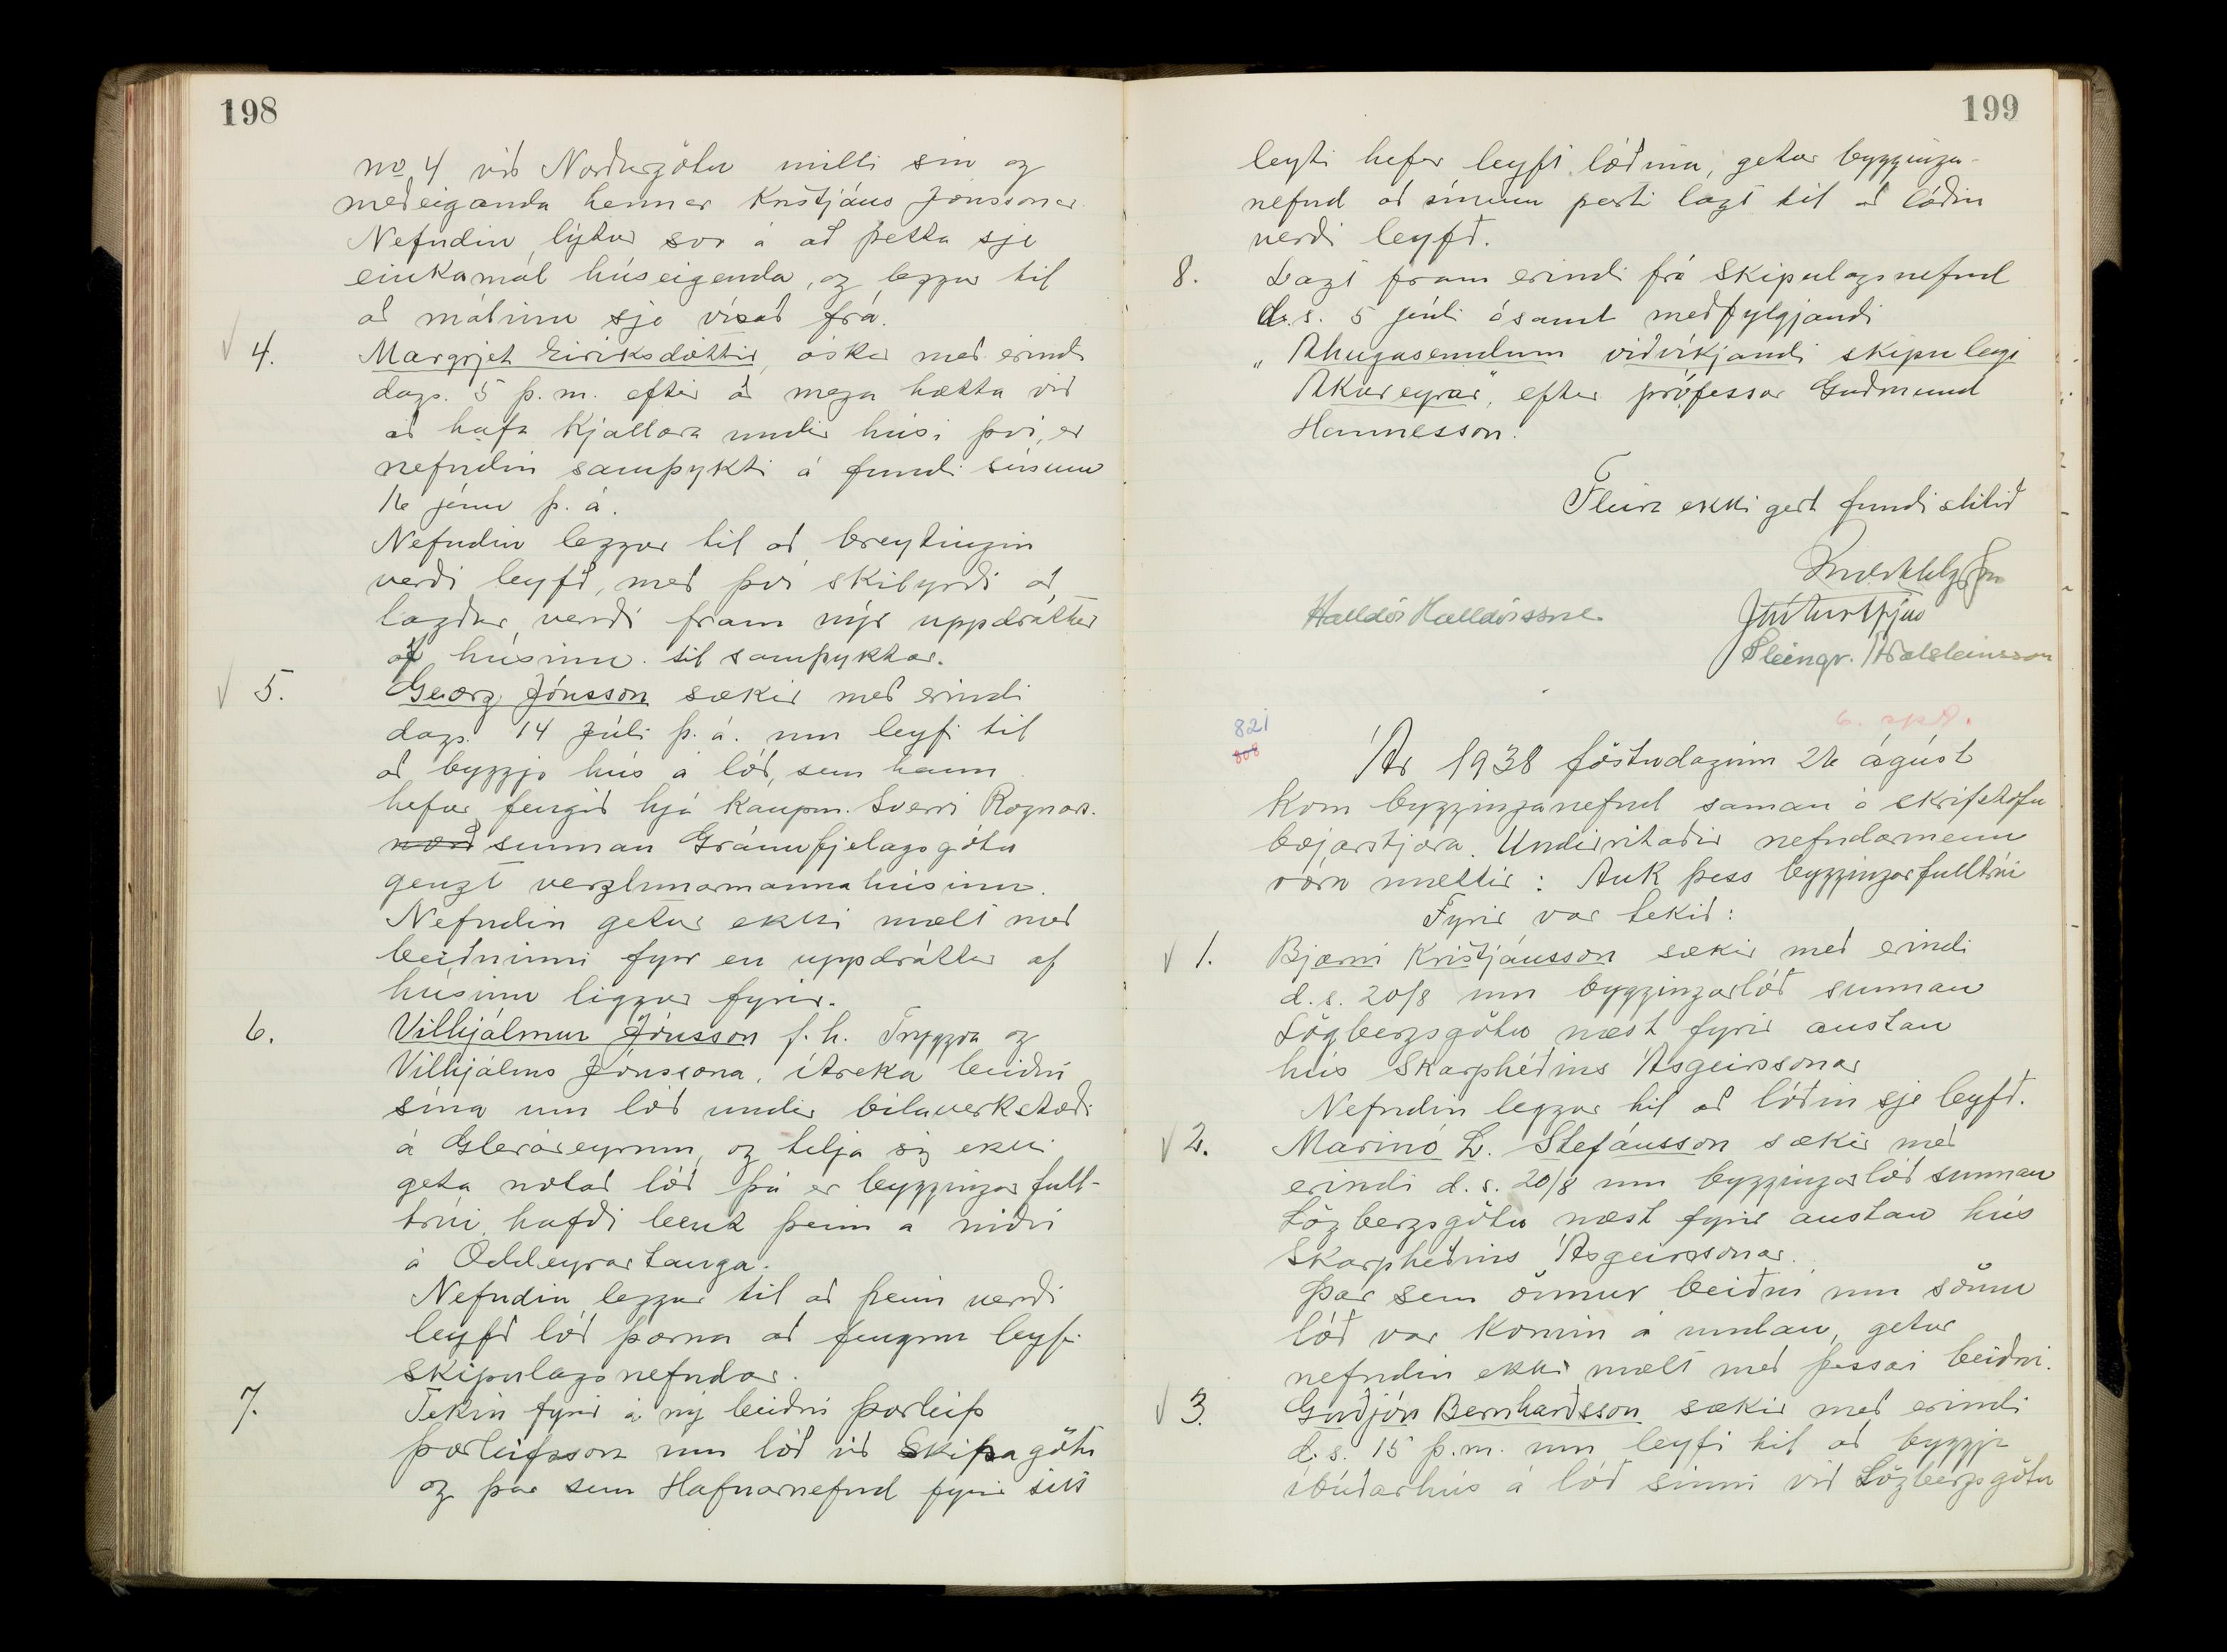 198
no 4 við Norðurgötu milli sín og
meðeiganda hennar Kristjáns Jónssonar.
Nefndin lýtur svo á að þetta sje
einkamál húseigenda, og leggur til
að málinu sje vísað frá.
4. Margrjet Eiriksdóttir, óskar með erindi
dags. 5 þ.m. eftir að mega hætta við
að hafa kjallara undir húsi því, er
nefndin samþykti á fundi sínum
16 júní þ.á.
Nefndin leggur til að breytingin
verði leyfð, með því skilyrði að
lagður verði fram nýr uppdráttur
af húsinu til samþyktar.
5. Georg Jónsson sækir með erindi
dags. 14 Júli þ.á. um leyfi til
að byggja hús á lóð, sem hann
hefur fengið hjá kaupm. Sverri Ragnars.
sunnan Gránufjelagsgötu
gengt verzlunarmannahúsinu.
Nefndin getur ekki mælt með
beiðninni fyr en uppdráttur af
húsinu liggur fyrir.
6. Vilhjálmur Jónsson f.h. Tryggva og
Vilhjálms Jónssona, ítreka beiðni
sína um lóð undir bílaverkstæði
á Gleráreyrum, og telja sig ekki
geta notað lóð þá er byggingarfull-
trúi hafði bent þeim a niðri
á Oddeyrartanga.
Nefndin leggur til að þeim verði
leyfð lóð þarna að fengnu leyfi
Skipulagsnefndar.
7. Tekin fyrir á ný beiðni Þorleifs
Þorleifssonar um lóð við Skipagötu
og þar sem Hafnarnefnd fyrir sitt
199
leyti hefur leyft lóðina, getur bygginga-
nefnd að sínum parti lagt til að lóðin
verði leyfð.
8. Lagt fram erindi frá Skipulagsnefnd
d.s. 5 júlí ásamt meðfylgjandi
„Athugasemdum viðvíkjandi skipulagi
Akureyrar", eftir prófessor Guðmund
Hannesson.
Fleira ekki gert fundi slitið
Halldór Halldórsson.
Steingr. Aðalsteinsson
821
808
6. sept.
Ár 1938 föstudaginn 26 ágúst
kom bygginganefnd saman á skrifstofu
bæjarstjóra. Undirritaðir nefndarmenn
voru mættir: Auk þess byggingarfulltrúi
Fyrir var tekið:
1. Bjarni Kristjánsson sækir með erindi
d.s. 20/8 um byggingarlóð sunnan
Lögbergsgötu næst fyrir austan
hús Skarphéðins Ásgeirssonar
Nefndin leggur til að lóðin sje leyfð.
2. Marinó L. Stefánsson sækir með
erindi d.s. 20/8 um byggingarlóð sunnan
Lögbergsgötu næst fyrir austan hús
Skarpheðins Ásgeirssonar.
Þar sem önnur beiðni um sömu
lóð var komin á undan, getur
nefndin ekki mælt með þessari beiðni.
3. Guðjón Bernharðsson sækir með erindi
d.s. 15 þ.m. um leyfi til að byggja
íbúðarhús á lóð sinni við Lögbergsgötu